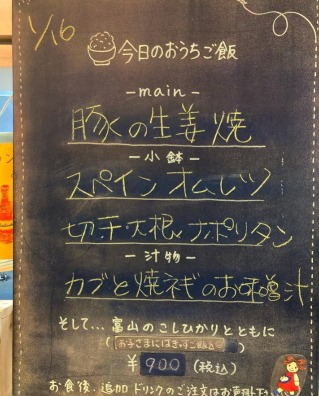 1/16
今日のおうちご飯
-main-
豚の生姜焼
-小鉢-
スペインオムレツ
切干大根ナポリタン
-汁物-
カブと焼ネギのお味噌汁
そして... 富山のこしひかりとともに
¥900 (税込)
お食後、追加ドリンクのご注文はお声掛下さい